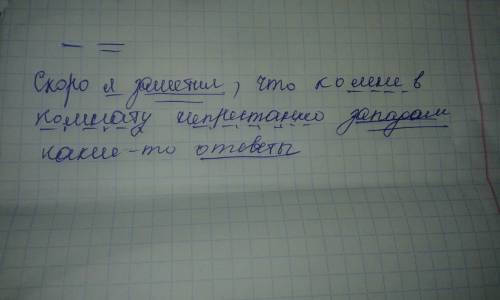 Скоро я заметил, что ко мне в
комнату непрестанно западали
какие-то отсветы